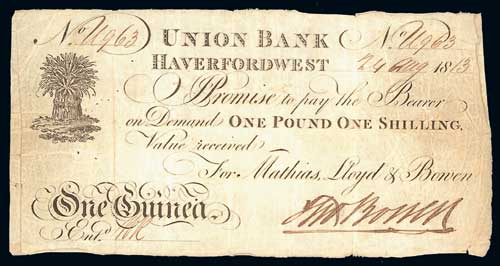 No. U963 UNION BANK No. U963
HAVERFORDWEST 24 Aug 1813
I Promise to pay the Bearer
on Demand ONE POUND ONE SHILLING,
Value received
For Mathias, Lloyd & Bowen
One Guinea
Ent.d
Bowen